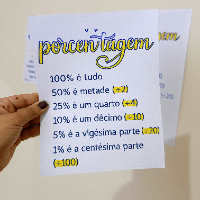 porcentagem
100% é tudo
50% é metade (÷2)
25% é um quarto (÷4)
10% é um décimo (÷10)
5% é a vigésima parte (÷20)
1% é a centésima parte
(÷100)